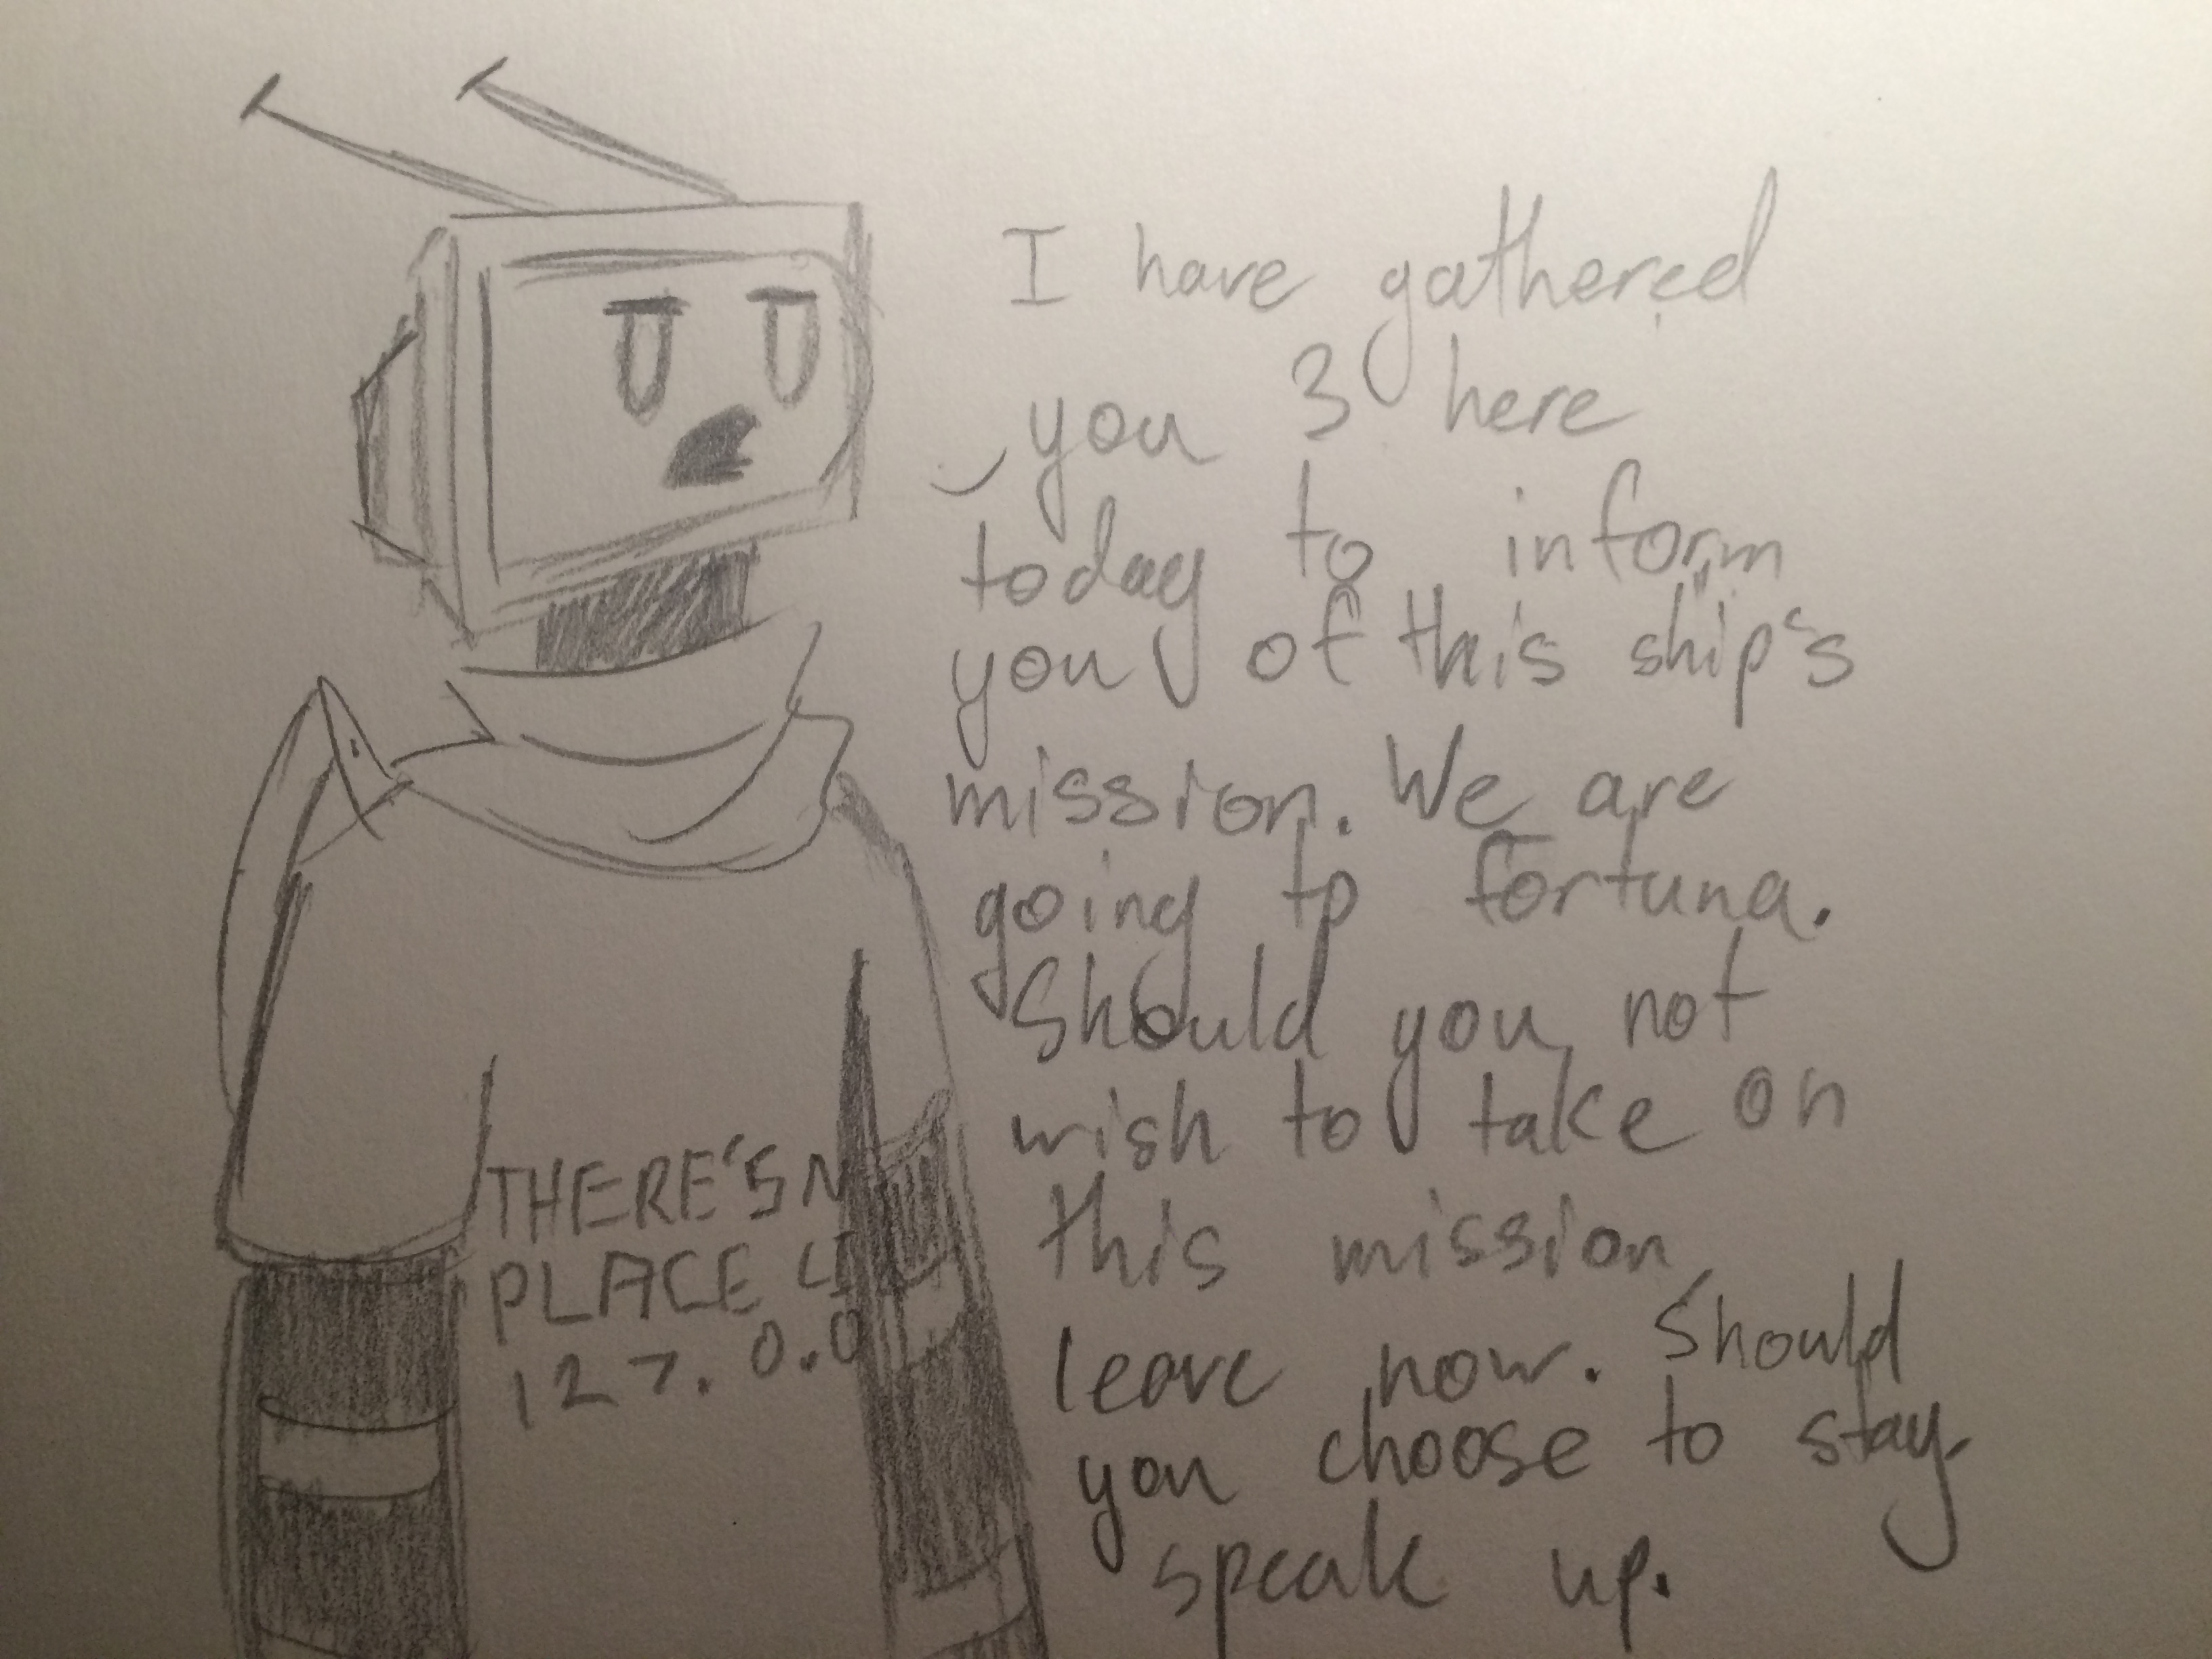 I have gathered
you 3 here
today to inform
you of this ship's
mission. We are
going to Fortuna.
Should you not
wish to take on
this mission
leave now. Should
you choose to stay
speak up.
THERE'S N
PLACE LI
127.0.0